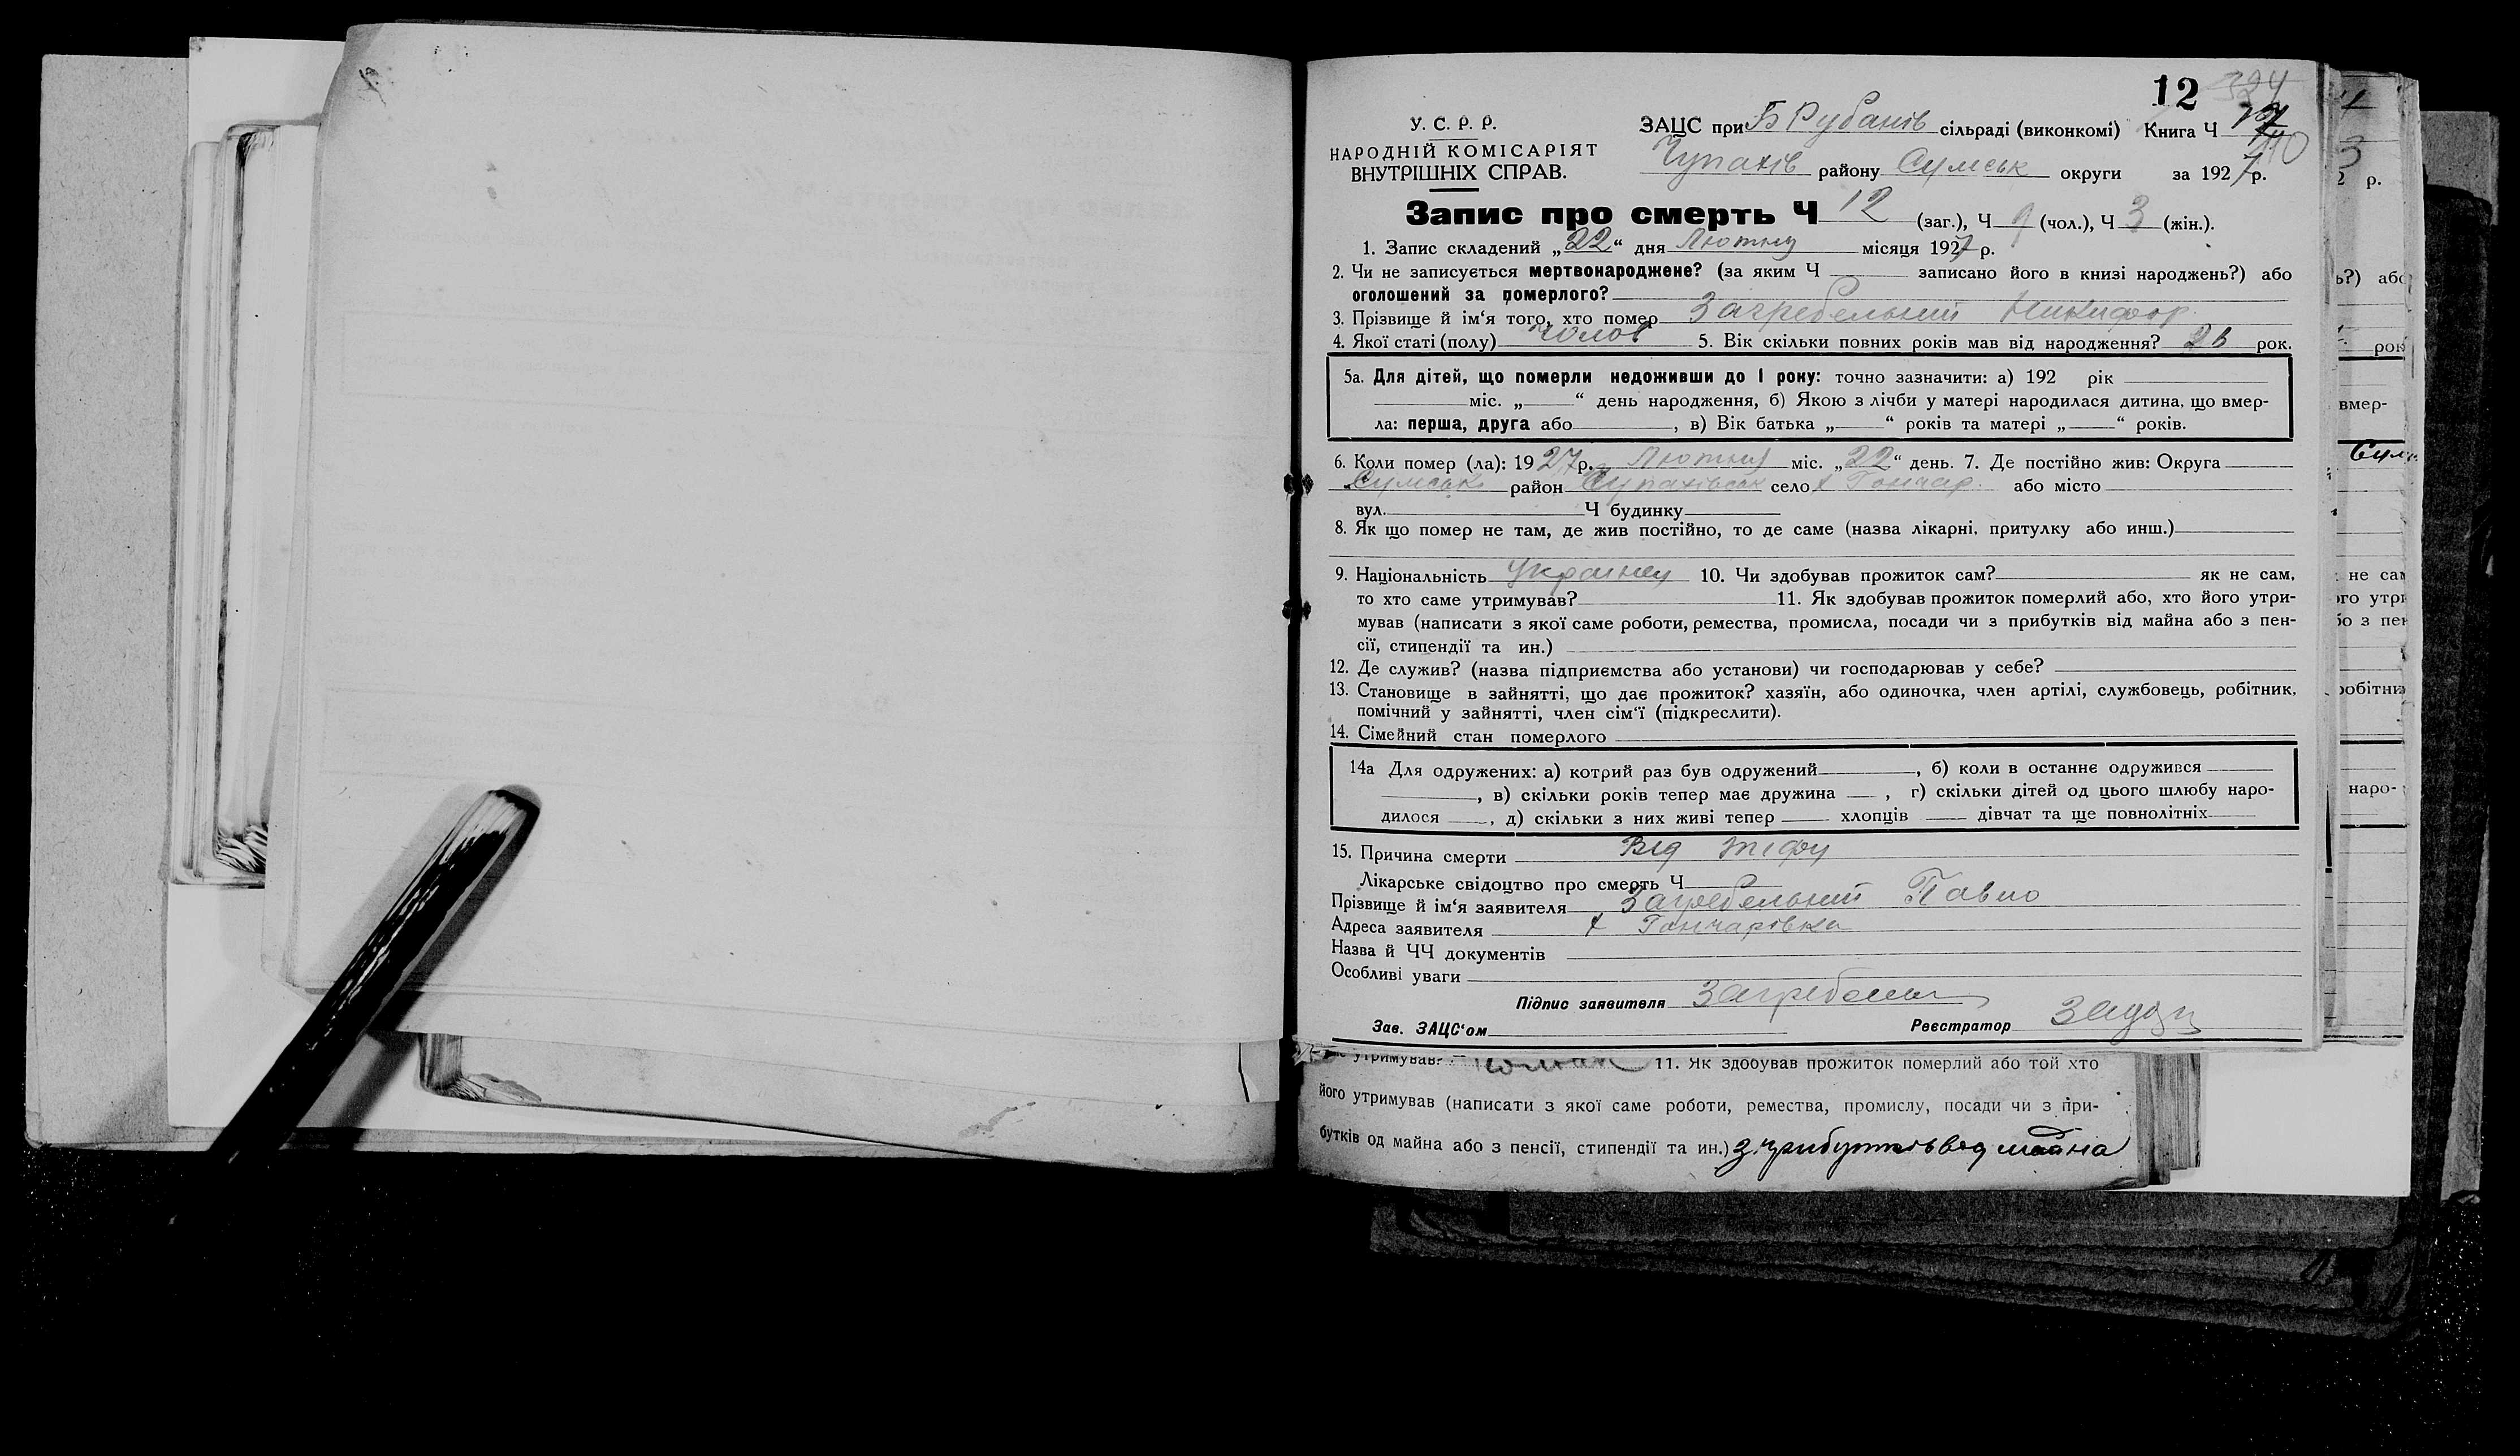 12 324
У. С. Р. Р.
НАРОДНІЙ КОМІСАРІЯТ
ВНУТРІШНІХ СПРАВ.
ЗАЦС при Б Рубанів сільраді (виконкомі) Книга Ч
110
Чупахів району Сумськ округи за 1927 р.
Запис про смерть Ч 12 (заг.), Ч 9 (чол.), Ч 3 (жін.).
1. Запис складений „22“ дня Лютня місяця 1927 р.
2. Чи не записується мертвонароджене? (за яким Ч записано його в книзі народжень?) або
оголошений за померлого?
3. Прізвище й ім‘я того, хто помер Загребельний Никифор
4. Якої статі (полу) чолов 5. Вік скільки повних років мав від народження? рок.
5а. Для дітей, що померли недоживши до 1 року: точно зазначити: а) 192 рік
міс. „ “ день народження, б) Якою з лічби у матері народилася дитина, що вмер-
ла: перша, друга або , в) Вік батька „ “ років та матері „ “ років.
6. Коли помер (ла): 1927 р. Лютня міс. „22“ день. 7. Де постійно жив: Округа
Сумськ район Чупахівськ село х Гончар. або місто
вул. Ч будинку
8. Як що помер не там, де жив постійно, то де саме (назва лікарні, притулку або инш.)
9. Національність Украинец 10. Чи здобував прожиток сам? як не сам,
то хто саме утримував? 11. Як здобував прожиток померлий або, хто його утри-
мував (написати з якої саме роботи, ремества, промисла, посади чи з прибутків від майна або з пен-
сії, стипендії та ин.)
12. Де служив? (назва підприємства або установи) чи господарював у себе?
13. Становище в зайнятті, що дає прожиток? хазяїн, або одиночка, член артілі, службовець, робітник,
помічний у зайнятті, член сім‘ї (підкреслити).
14. Сімейний стан померлого
14а Для одружених: а) котрий раз був одружений , б) коли в останнє одружився
, в) скільки років тепер має дружина , г) скільки дітей од цього шлюбу наро-
дилося , д) скільки з них живі тепер хлопців дівчат та ще повнолітніх
15. Причина смерти Від тифу
Лікарське свідоцтво про смерть Ч
Прізвище й ім‘я заявителя Загребельний Павло
Адреса заявителя х Гончарівка
Назва й ЧЧ документів
Особливі уваги
Підпис заявителя Загребельн
Зав. ЗАЦС‘ом Реєстратор
утримував? 11. Як здобував прожиток померлий або той хто
його утримував (написати з якої саме роботи, ремества, промислу, посади чи з при-
бутків од майна або з пенсії, стипендії та ин.) з прибутків від майна
3
2 р.
ь?) або
рок
вмер-
не сам
ого утри
бо з пен
робітник
наро-